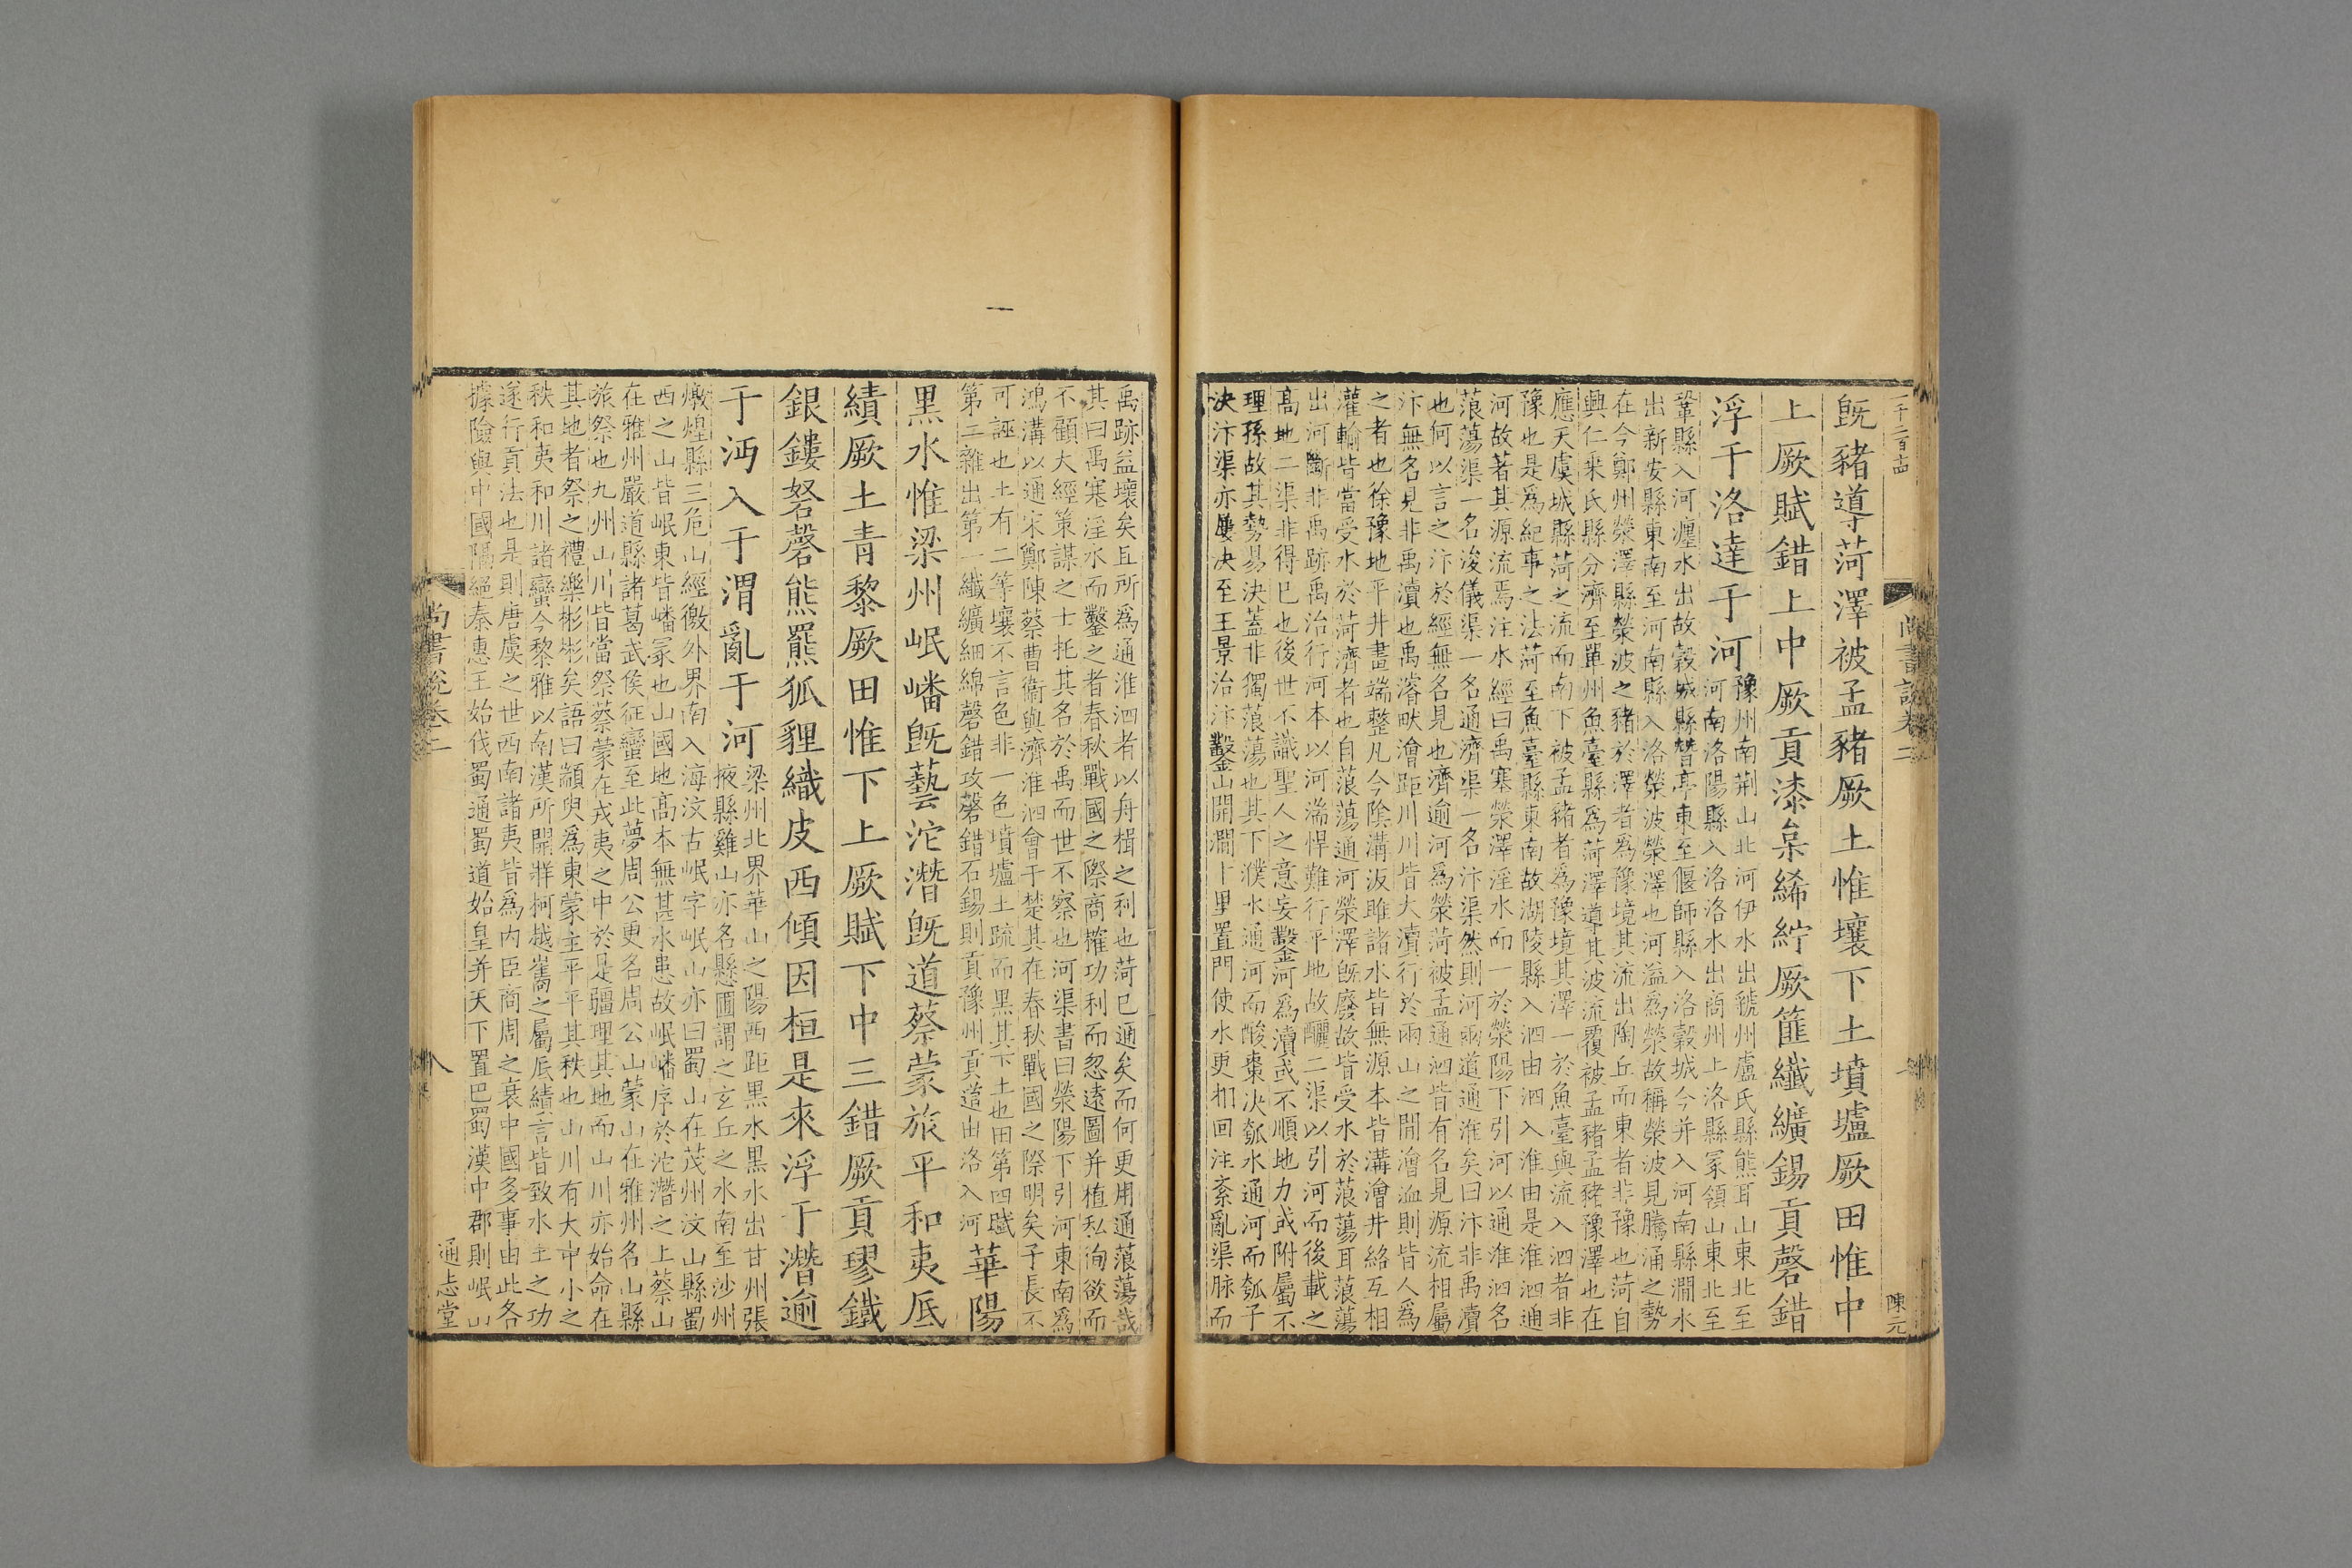 一千二百十四
尚書說卷二
陳元
旣豬導菏澤被孟豬厥土惟壤下土墳壚厥田惟中
上厥賦錯上中厥貢漆枲絺紵厥篚纖纊錫貢磬錯
浮于洛達于河
豫州南荆山北河伊水出虢州盧氏縣熊耳山東北至
河南洛陽縣入洛洛水出商州上洛縣冢領山東北至
鞏縣入河瀍水出故穀城縣朁亭東至偃師縣入洛穀城今并入河南縣澗水
出新安縣東南至河南縣入洛滎波滎澤也河溢爲滎故稱滎波見騰涌之勢
在今鄭州滎澤縣滎波之豬於澤者爲豫境其流出陶丘而東者非豫也菏自
興仁乘氏縣分濟至單州魚臺縣爲菏澤導其波流覆被孟豬孟豬豫澤也在
應天虞城縣菏之流而南下被孟豬者爲豫境其澤一於魚臺與流入泗者非
豫也是爲紀事之法菏至魚臺縣東南故湖陵縣入泗由泗入淮由是淮泗通
河故著其源流焉注水經曰禹塞滎澤淫水而一於滎陽下引河以通淮泗名
蒗蕩渠一名浚儀渠一名通濟渠一名汴渠然則河兩道通淮矣曰汴非禹瀆
也何以言之汴於經無名見也濟逾河爲滎菏被孟通泗皆有名見源流相屬
汴無名見非禹瀆也禹濬畎澮距川川皆大瀆行於兩山之閒澮洫則皆人爲
之者也徐豫地平井畫端整凡今陰溝汳睢諸水皆無源本皆溝澮井絡互相
灌輸皆當受水於菏濟者也自蒗蕩通河滎澤旣廢故皆受水於蒗蕩耳蒗蕩
出河斷非禹跡禹治行河本以河湍悍難行平地故釃二渠以引河而後載之
高地二渠非得已也後世不識聖人之意妄鑿河爲瀆或不順地力或附屬不
理孫故其勢易決蓋非獨蒗蕩也其下濮水通河而酸棗決瓠水通河而瓠子
決汴渠亦屢決至王景治汴鑿山開澗十里置門使水更相回注紊亂渠脉而
禹跡益壞矣且所爲通淮泗者以舟楫之利也菏已通矣而何更用通蒗蕩哉
其曰禹塞淫水而鑿之者春秋戰國之際商榷功利而忽遠圖并植私徇欲而
不顧大經策謀之士托其名於禹而世不察也河渠書曰滎陽下引河東南爲
鴻溝以通宋鄭陳蔡曹衞與濟淮泗會于楚其在春秋戰國之際明矣子長不
可誣也土有二等壤不言色非一色墳壚土疏而黑其下土也田第四賦
第二雜出第一纖纊細綿磬錯攻磬錯石錫則貢豫州貢道由洛入河
華陽
黑水惟梁州岷嶓旣藝沱潛旣道蔡蒙旅平和夷厎
績厥土青黎厥田惟下上厥賦下中三錯厥貢璆鐵
銀鏤砮磬熊羆狐貍織皮西傾因桓是來浮于潛逾
于沔入于渭亂于河
梁州北界華山之陽西距黑水黑水出甘州張
掖縣雞山亦名懸圃謂之玄丘之水南至沙州
燉煌縣三危山經徼外界南入海汶古岷字岷山亦曰蜀山在茂州汶山縣蜀
西之山皆岷東皆嶓冢也山國地高本無甚水患故岷嶓序於沱潛之上蔡山
在雅州嚴道縣諸葛武侯征蠻至此夢周公更名周公山蒙山在雅州名山縣
旅祭也九州山川皆當祭蔡蒙在戎夷之中於是疆理其地而山川亦始命在
其地者祭之禮樂彬彬矣語曰顓臾爲東蒙主平平其秩也山川有大中小之
秩和夷和川諸蠻今黎雅以南漢所開牂柯越嶲之屬厎績言皆致水土之功
遂行貢法也是則唐虞之世西南諸夷皆爲内臣商周之衰中國多事由此各
據險與中國隔絕秦惠王始伐蜀通蜀道始皇并天下置巴蜀漢中郡則岷山
尚書說卷二
八
通志堂